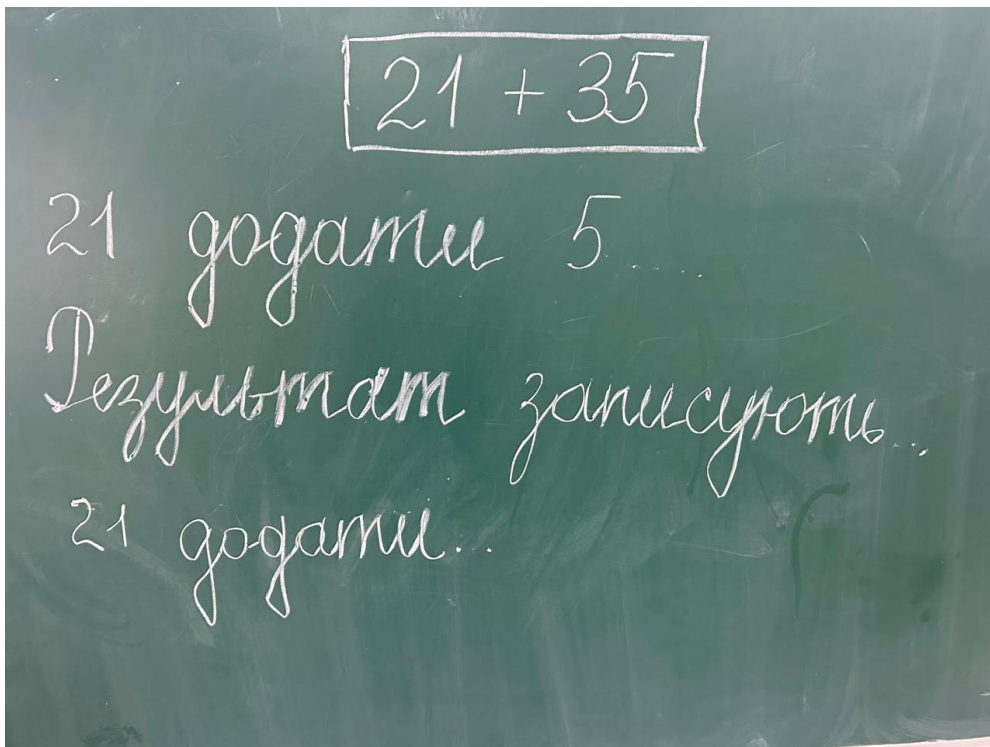 21 + 35
21 додати 5.....
Результат записують...
21 додати...